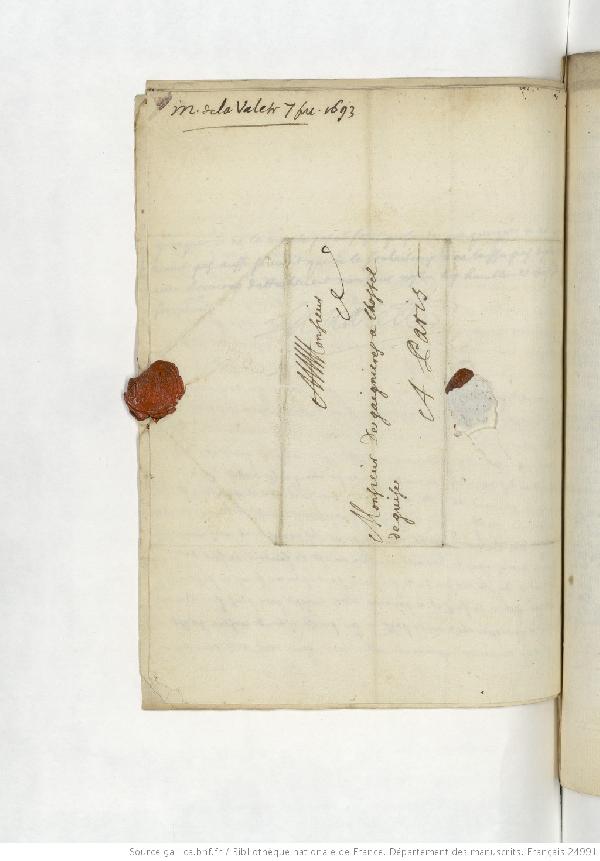 m. de la Valete 7 bre. 1693
Monsieur
Monsieur Desgaignieres a lhostel
de guise
A Paris
Source gallica.bnf.fr / Bibliothèque nationale de France. Département des manuscrits. Français 24991